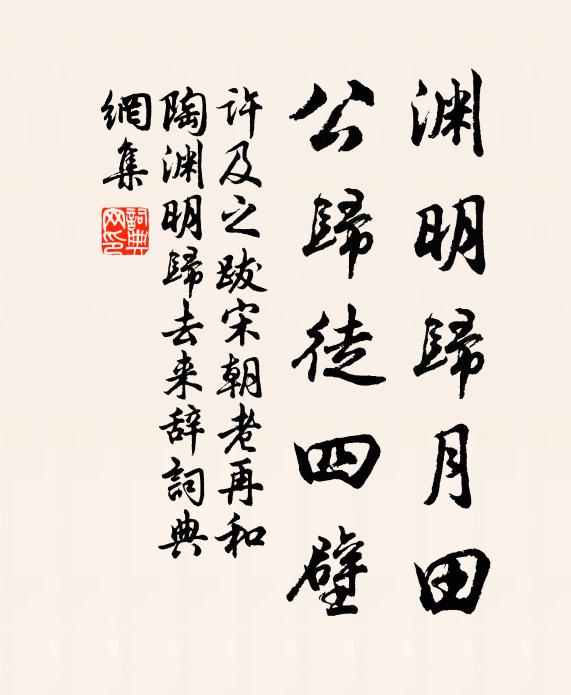 渊明歸月田
公歸徒四壁
许及之跋宋朝老再和
陶渊明歸去来辞詞典
網集
詞典网印